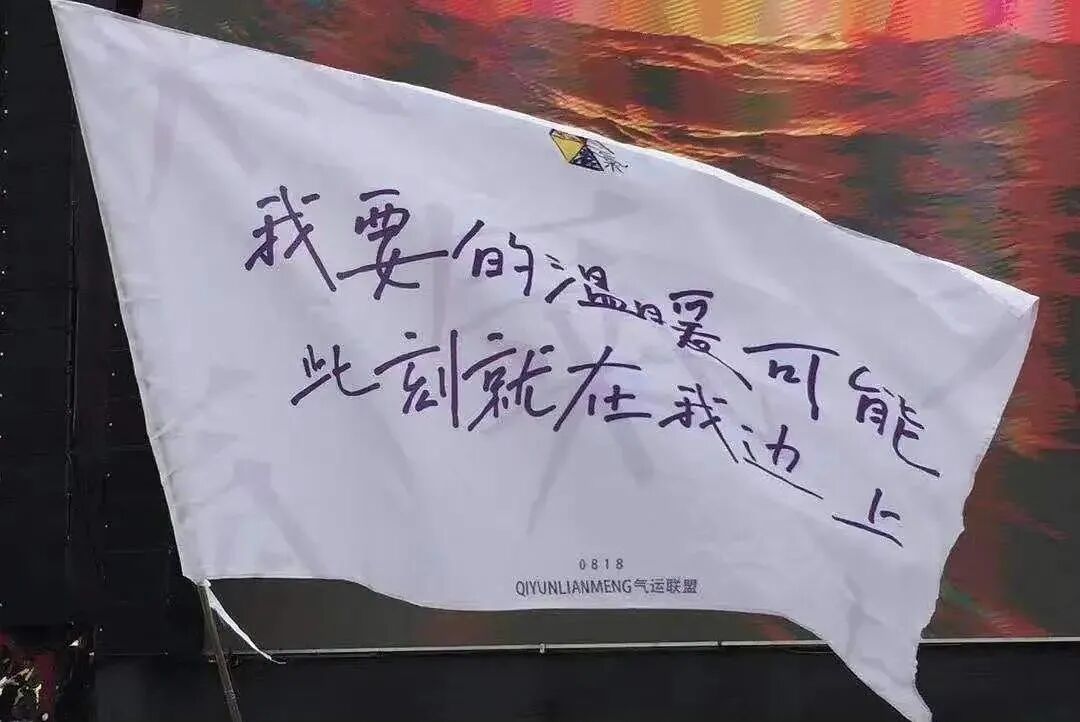 我要的温暖可能
此刻就在我边上
0818
QIYUNLIANMENG气运联盟